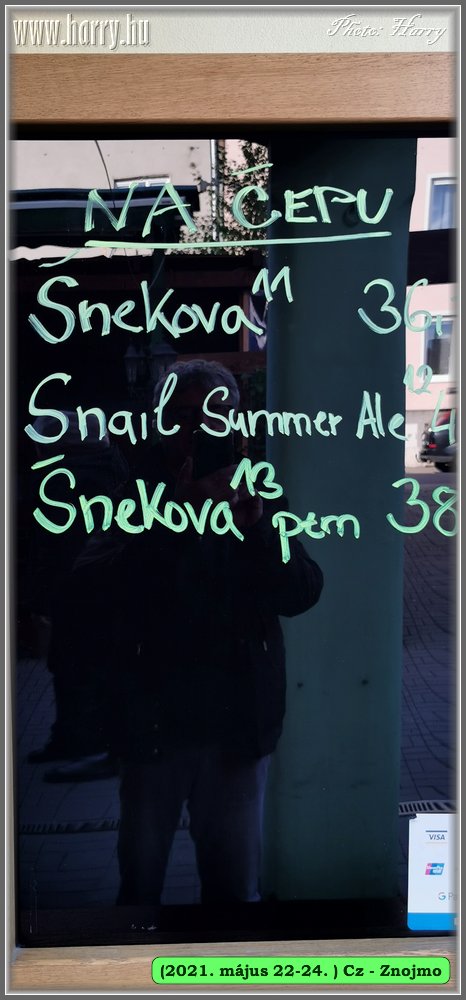 www.harry.hu
Photo: Harry
NA ČEPU
Šnekova 11 36,-
Snail Summer Ale 12 4
Šnekova 13 pern 38
VISA
G Pa
(2021. május 22-24. ) Cz - Znojmo